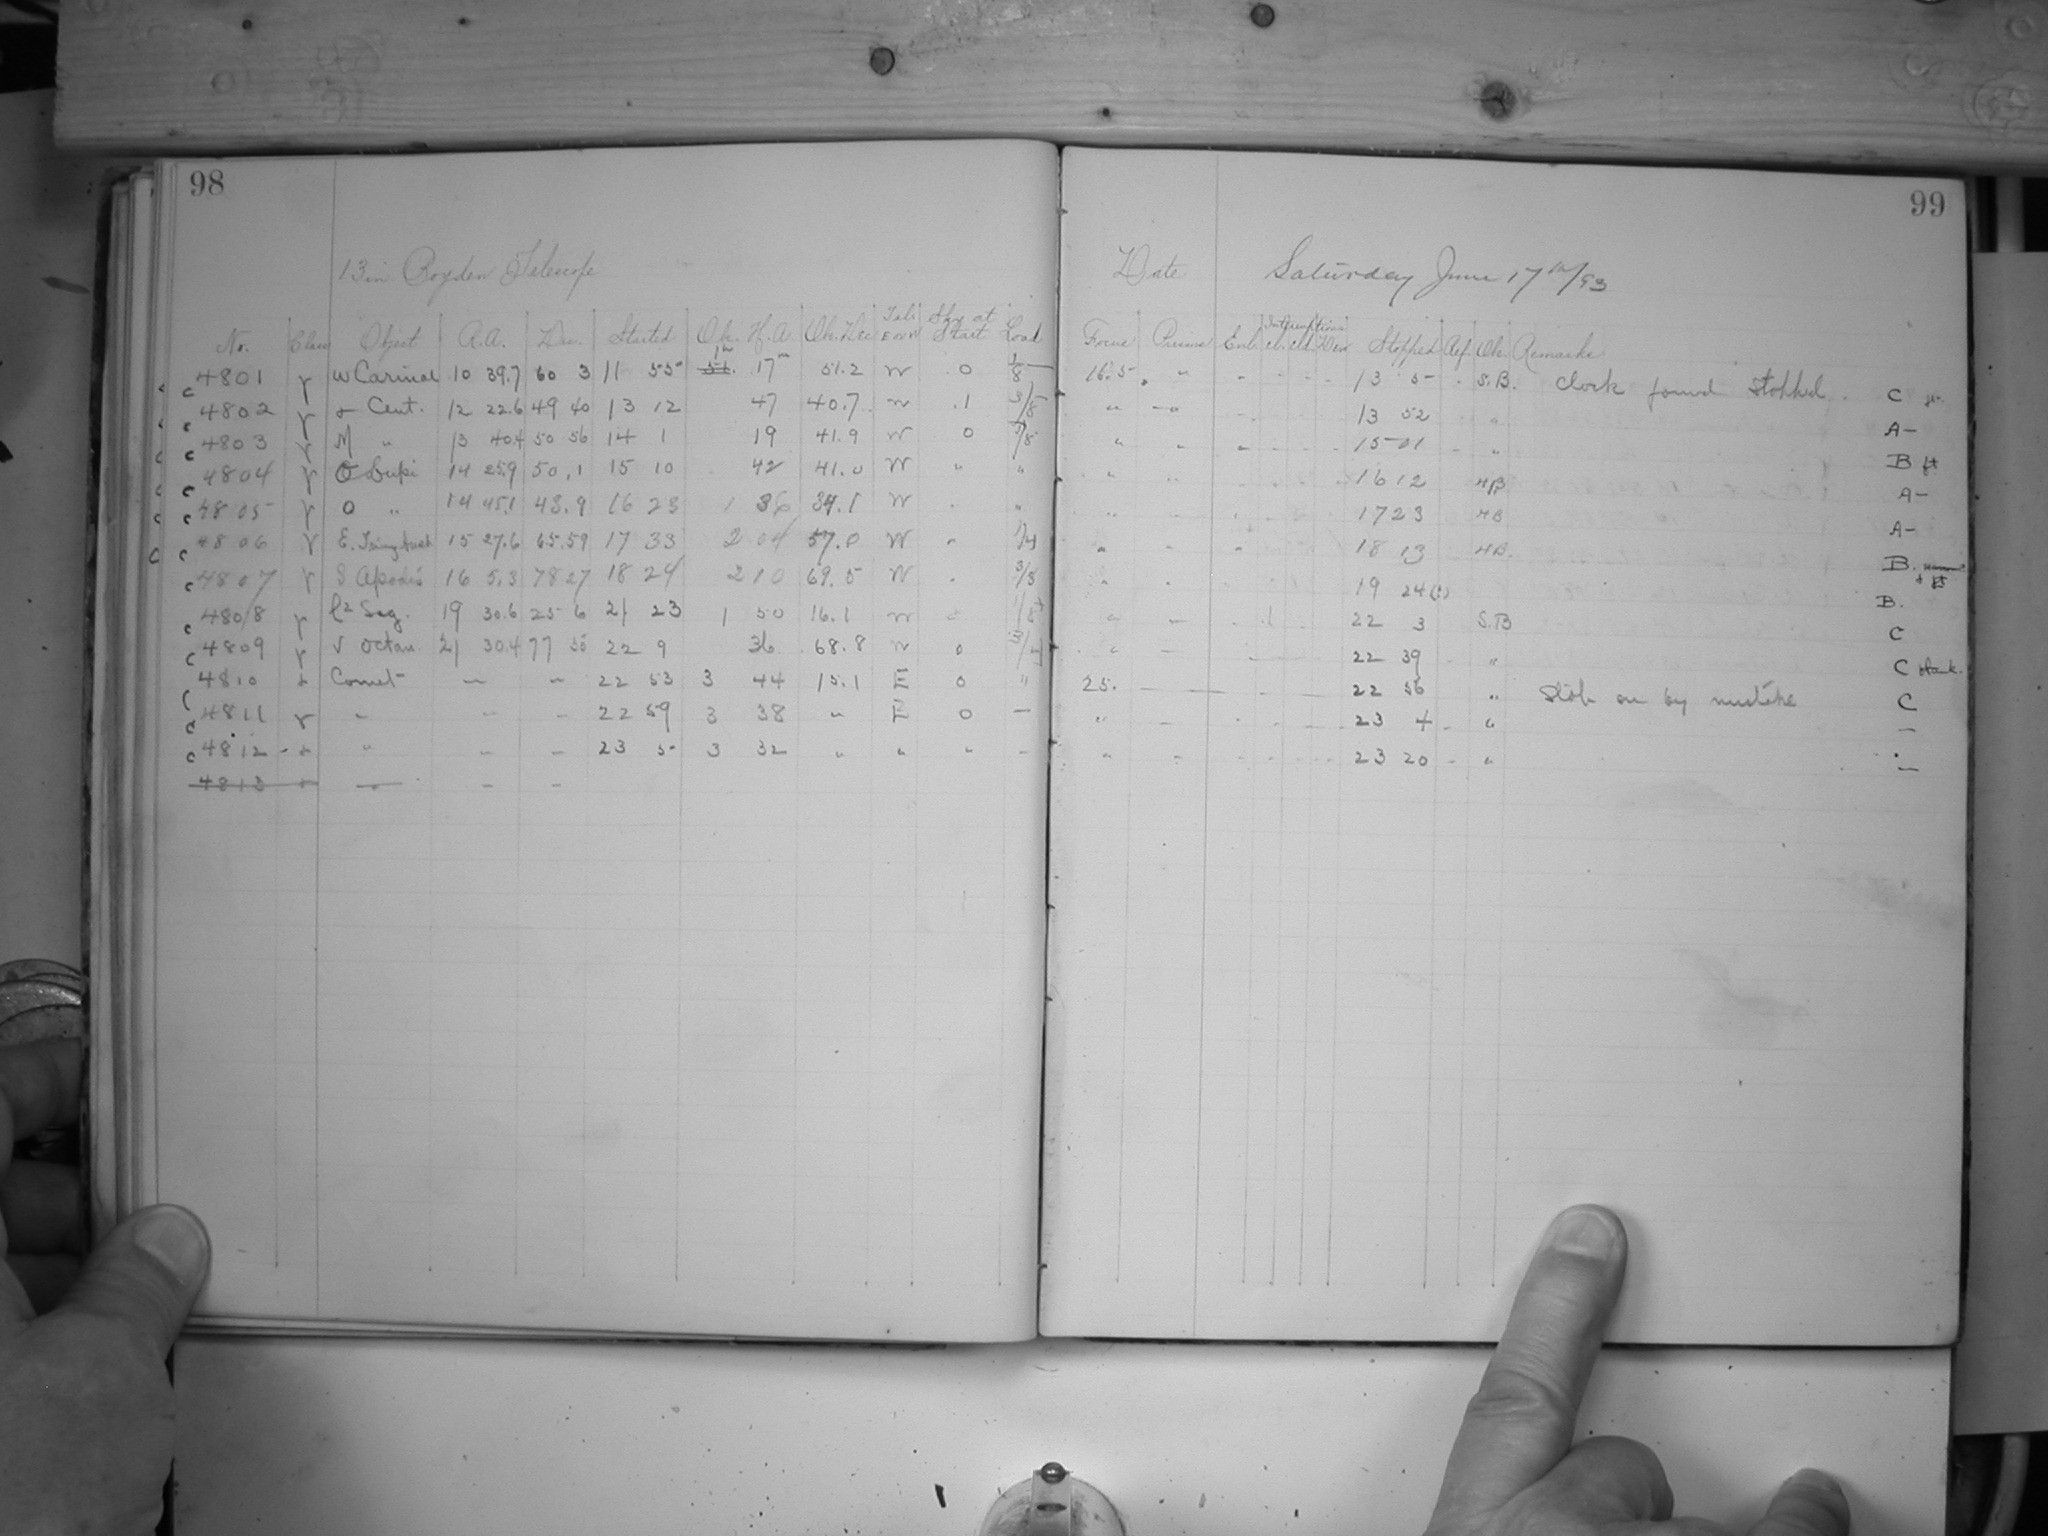 98
13 in Boyden Telescope
No. Class Object R.A. Dec. Started Ob. H.A. Ob. Dec Tel. E or W Sky at Start Load
c 4801 r w Carinae 10 39.7 60 3 11 55 1h 17m 51.2 W 0 1/8
c 4802 r Cent. 12 22.6 49 40 13 12 47 40.7 W .1 3/8
c 4803 r M " 13 40.4 50 56 14 1 19 41.9 W 0 /8
c 4804 r Lupi 14 25.9 50.1 15 10 42 41.0 W " "
c 4805 r o " 14 45.1 43.9 16 23 1 36 34.1 W " "
c 4806 r E. Triang Aust 15 27.6 65.59 17 33 2 04 57.0 W " 1/4
c 4807 r δ Apodis 16 5.3 78 27 18 24 2 10 69.5 W . 3/8
c 4808 r Sag. 19 30.6 25 6 21 23 1 50 16.1 W
c 4809 r ν Octan. 21 30.4 77 50 22 9 36 68.8 W 0
4810 Comet — — 22 53 3 44 15.1 E 0 "
c 4811 r " — — 22 59 3 38 " E 0 —
c 4812 " — — 23 5 3 32 " " " —
4813 — — —
99
Date Saturday June 17th/93
Focus Prisms Enl. Interruptions Cl. Cld. Dew Stopped Ref. Ob. Remarks
16.5 " - - - - 13 5 - S.B. Clock found stopped. C
" - 13 52 " A-
" " 15 01 " B ft
" " 16 12 HB A-
" " 17 23 HB A-
" " 18 13 HB. B.
" " 19 24(?) B.
" - 22 3 S.B C
" - 22 39 " C
25. — — 22 56 " Stop on by mistake C
" - 23 4 - " —
" - 23 20 - " —